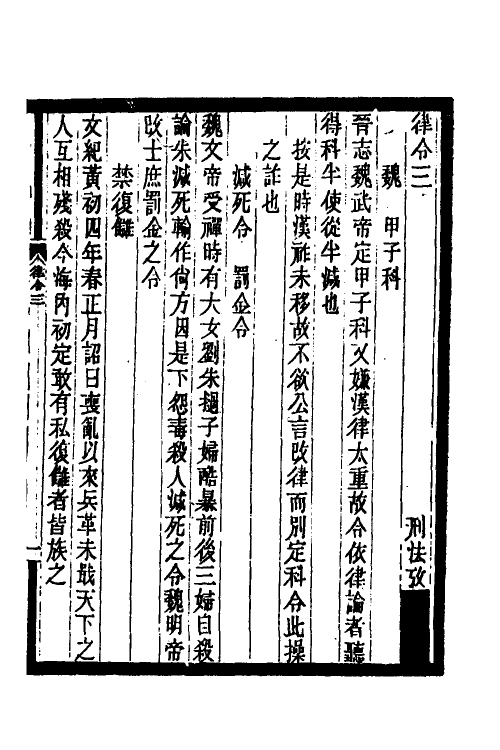 律令三 刑法攷
魏 甲子科
晉志魏武帝定甲子科又嫌漢律太重故令依律論者聽
得科半使從半減也
按是時漢祚未移故不欲公言改律而別定科令此操
之詐也
減死令 罰金令
魏文帝受禪時有大女劉朱撾子婦酷暴前後三婦自殺
論朱減死輸作尚方因是下怨毒殺人減死之令魏明帝
改士庶罰金之令
禁復讎
文紀黃初四年春正月詔曰喪亂以來兵革未戢天下之
人互相殘殺今海內初定敢有私復讎者皆族之
律令三
一